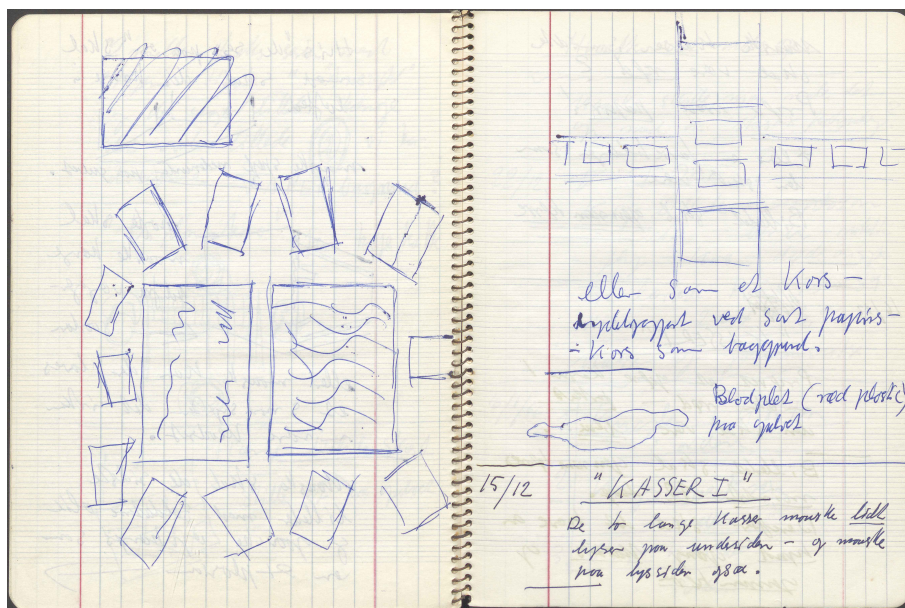 eller som et Kors –
tydeliggjort ved sort papirs-
- Kors som baggrund.
Blodplet (rød plastic)
paa gulvet
15/12 "KASSER I"
De to lange Kasser maaske lidt
lysere paa undersiden – og maaske
paa lyssiden også.